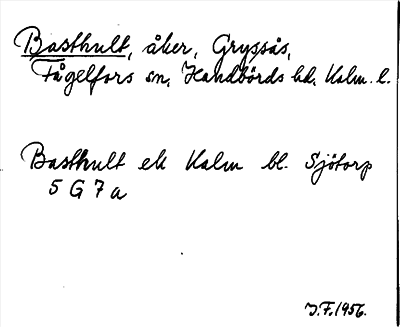 Basthult, åker, Gryssås,
Fågelfors sn, Handbörds hd, Kalm. l.
Basthult ek Kalm bl. Sjötorp
5 G 7 a
J.F. 1956.